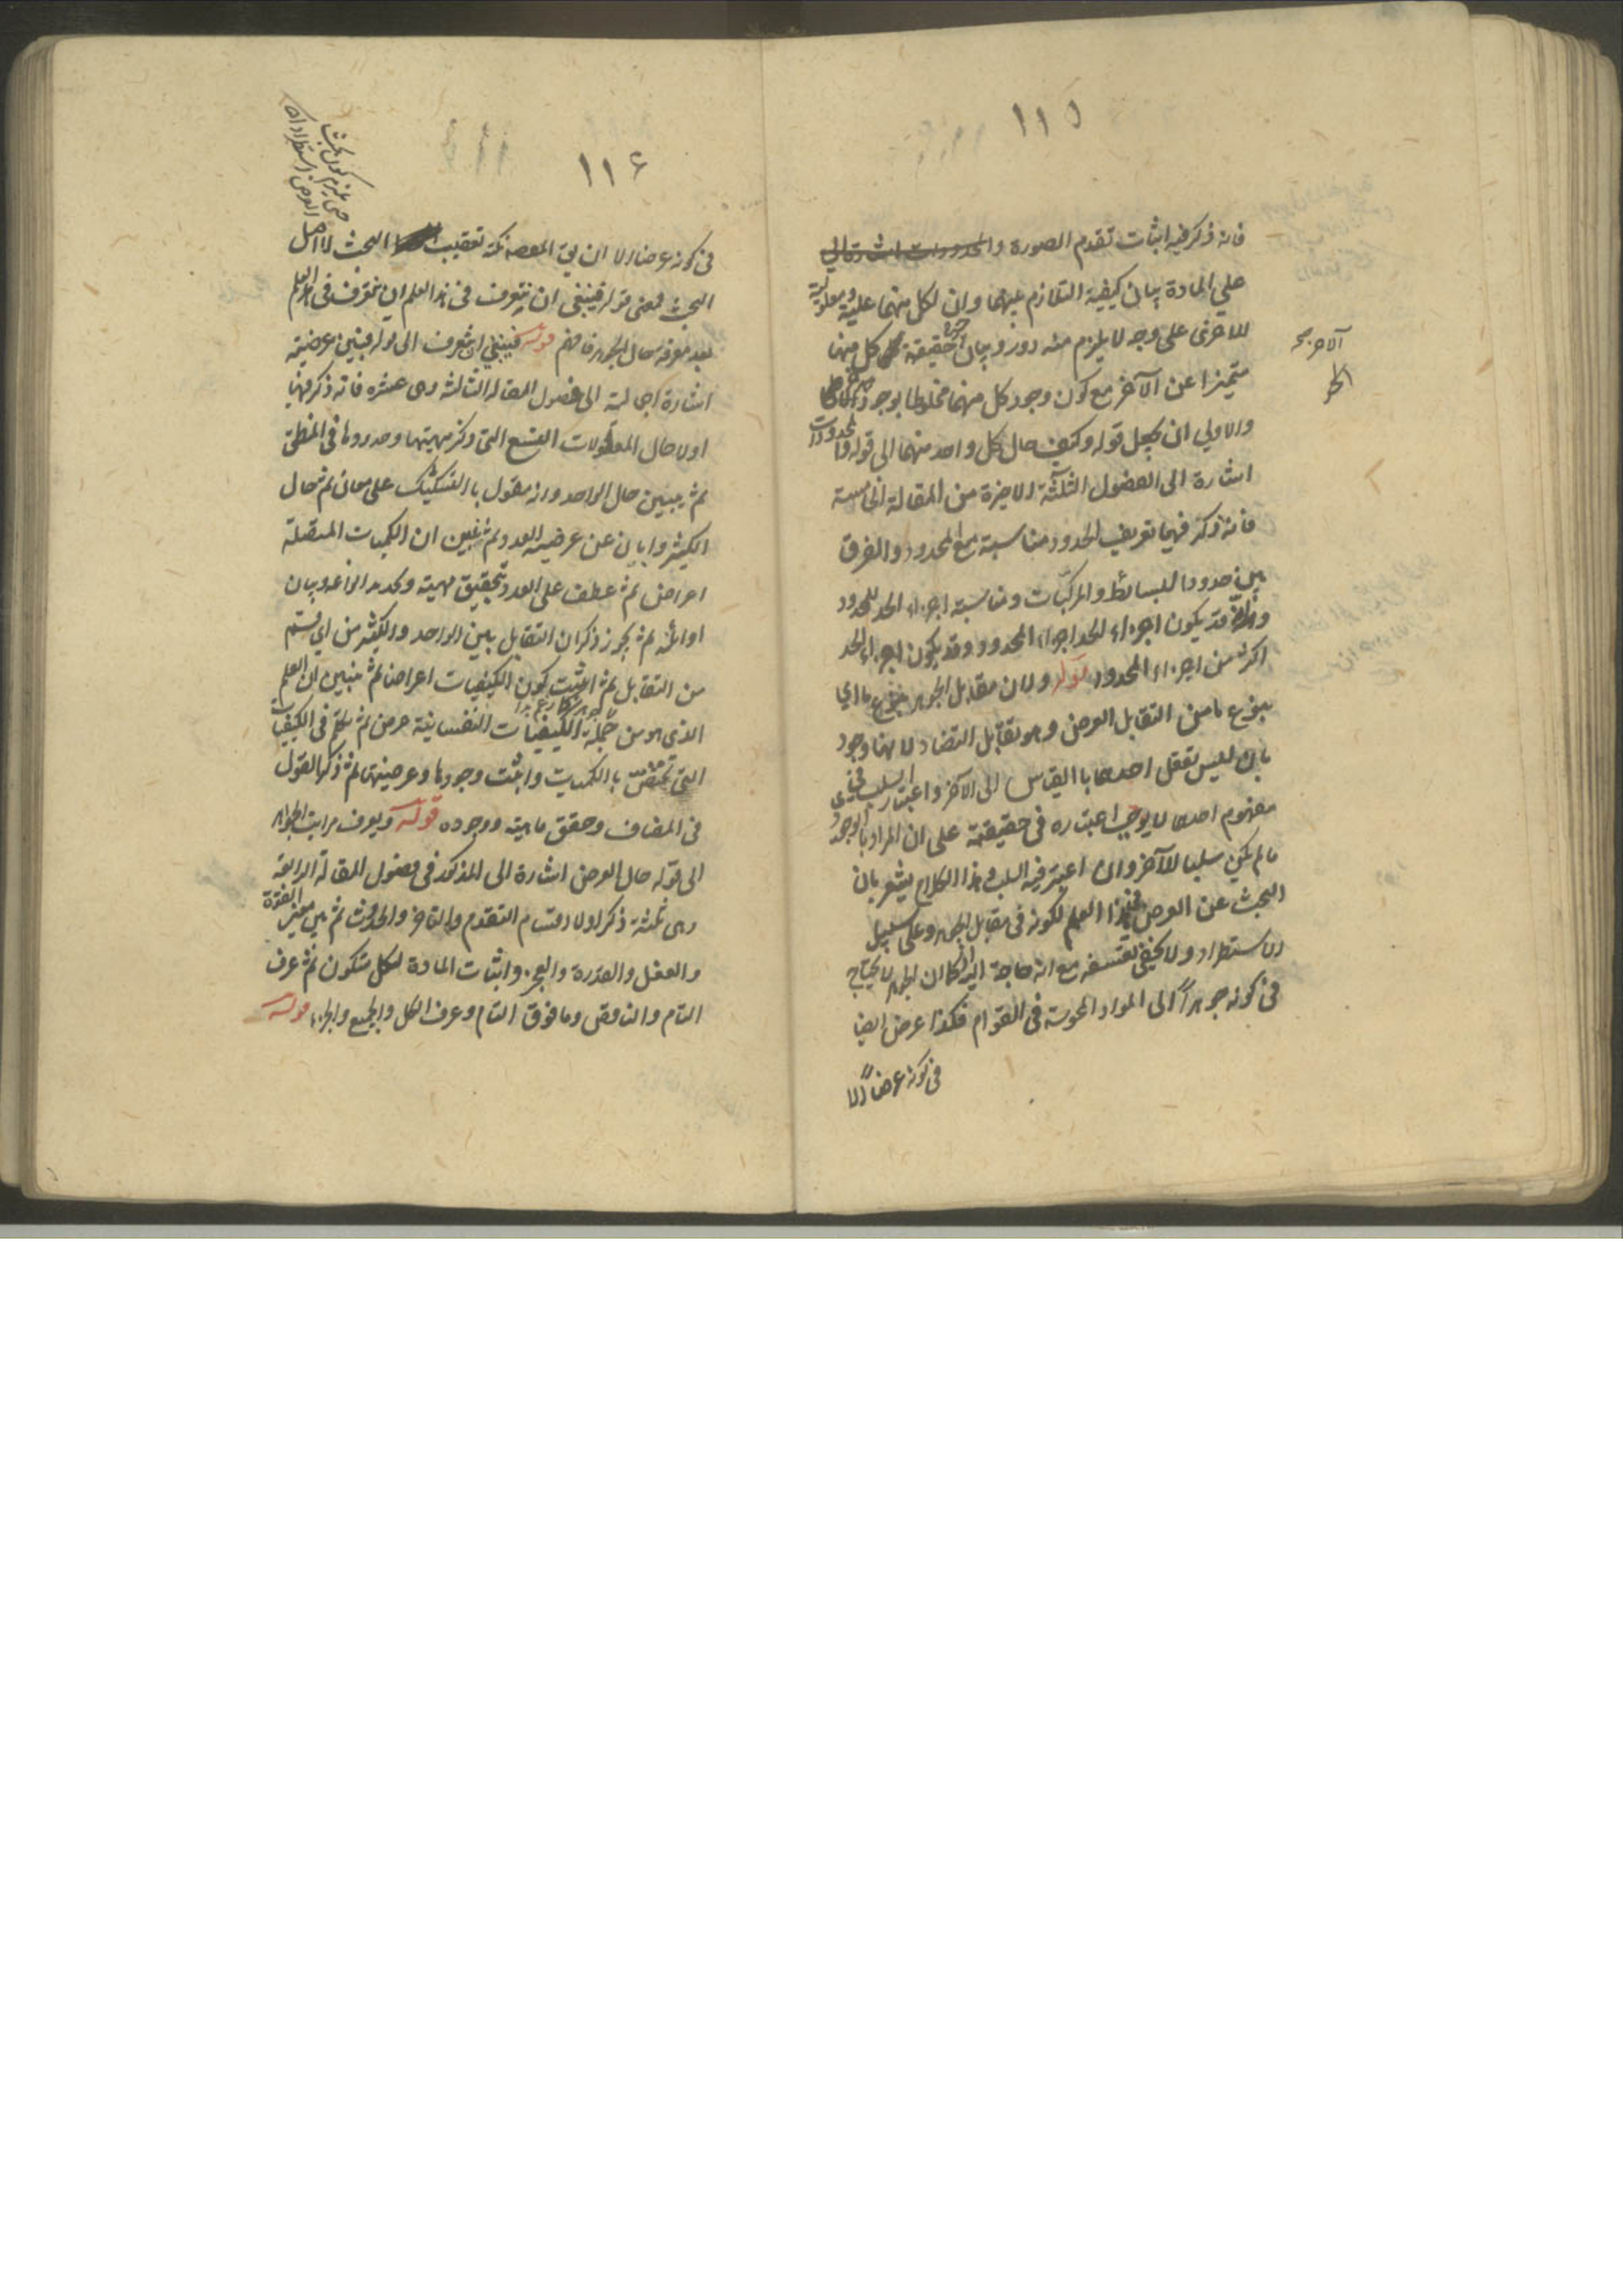 ١١٥
فانه ذكر فيه اثبات تقدم الصورة
على المادة بيان كيفية التلازم بينهما وان لكل منهما علية ومعلولية
للاخرى على وجه لا يلزم منه دور وبيان ان حقيقة كل منهما
متميزا عن الآخر مع كون وجود كل منهما مخلوطا بوجود
والاولي ان يجعل قوله وكيف حال كل واحد منهما الى قوله والمحدودات
اشارة الى الفصول الثلثة الاخيرة من المقالة الخامسة
فانه ذكر فيها تعريف الحدود مناسبته مع المحدود والفرق
بين حدود البسائط والمركبات ومناسبة اجزاء الحد للمحدود
وانه قد يكون اجزاء الحد اجزاء المحدود وقد يكون اجزاء الحد
اكثر من اجزاء المحدود قوله ولان مقابل الجوهر بنوع ما اي
بنوع ما من التقابل العرض وهو تقابل التضاد لانهما وجود
بان ليس تعقل احدهما بالقياس الى الآخر واعتبار السلب في
مفهوم احدهما لا يوجب اعتباره في حقيقته على ان المراد بالوجود
ما لم يكن سلبا للآخر وان اعتبر فيه السلب وهذا الكلام يشعر بان
البحث عن العرض في هذا العلم لكونه في مقابل الجوهر وعلى سبيل
الاستطراد ولا يخفى تعسفه مع انه لا حاجة اليه اذ كما ان الجوهر لا يحتاج
في كونه جوهرا الى المواد المحسوسة في القوام فكذا عرض ايضا
في كونه عرضا الا
١١٦
في كونه عرضا الا ان يق المقصود نكتة تعقيب البحث لا اصل
البحث فمعنى قوله فينبغي ان يتعرف في هذا العلم ان نتعرف في هذا العلم
بعد معرفة حال الجوهر فافهم قوله فينبغي ان يتعرف الى قوله فيتبين عرضيته
اشارة اجمالية الى فصول المقالة الثالثة وهى عشره فانه ذكر فيها
اولا حال المقولات التسع التي ذكر مهيتها وحدودها في المنطق
ثم يبين حال الواحد وانه مقول بالتشكيك على معان ثم حال
الكثير وابان عن عرضية العدد ثم تبين ان الكميات المتصلة
اعراض ثم عطف على العدد بتحقيق مهيته وتحديد انواعه وبيان
اوائله ثم ذكر ان التقابل بين الواحد والكثير من اي قسم
من التقابل ثم اثبت كون الكيفيات اعراضا ثم تبين ان العلم
الذي هو من جملة الكيفيات النفسانية عرض ثم تكلم في الكيفيات
التي تختص بالكميات واثبت وجودها وعرضيتها ثم ذكر القول
في المضاف وحقق ماهيته ووجوده قوله ويعرف مراتب الجواهر
الى قوله حال العرض اشارة الى المذكور في فصول المقالة الرابعة
وهى ثلثة ذكر اولا اقسام التقدم والتاخر والحدوث ثم بين معنى القوة
والفعل والقدرة والعجز واثبات المادة لكل متكون ثم عرف
التام والناقص وما فوق التام وعرف الكل والجميع والجزء قوله